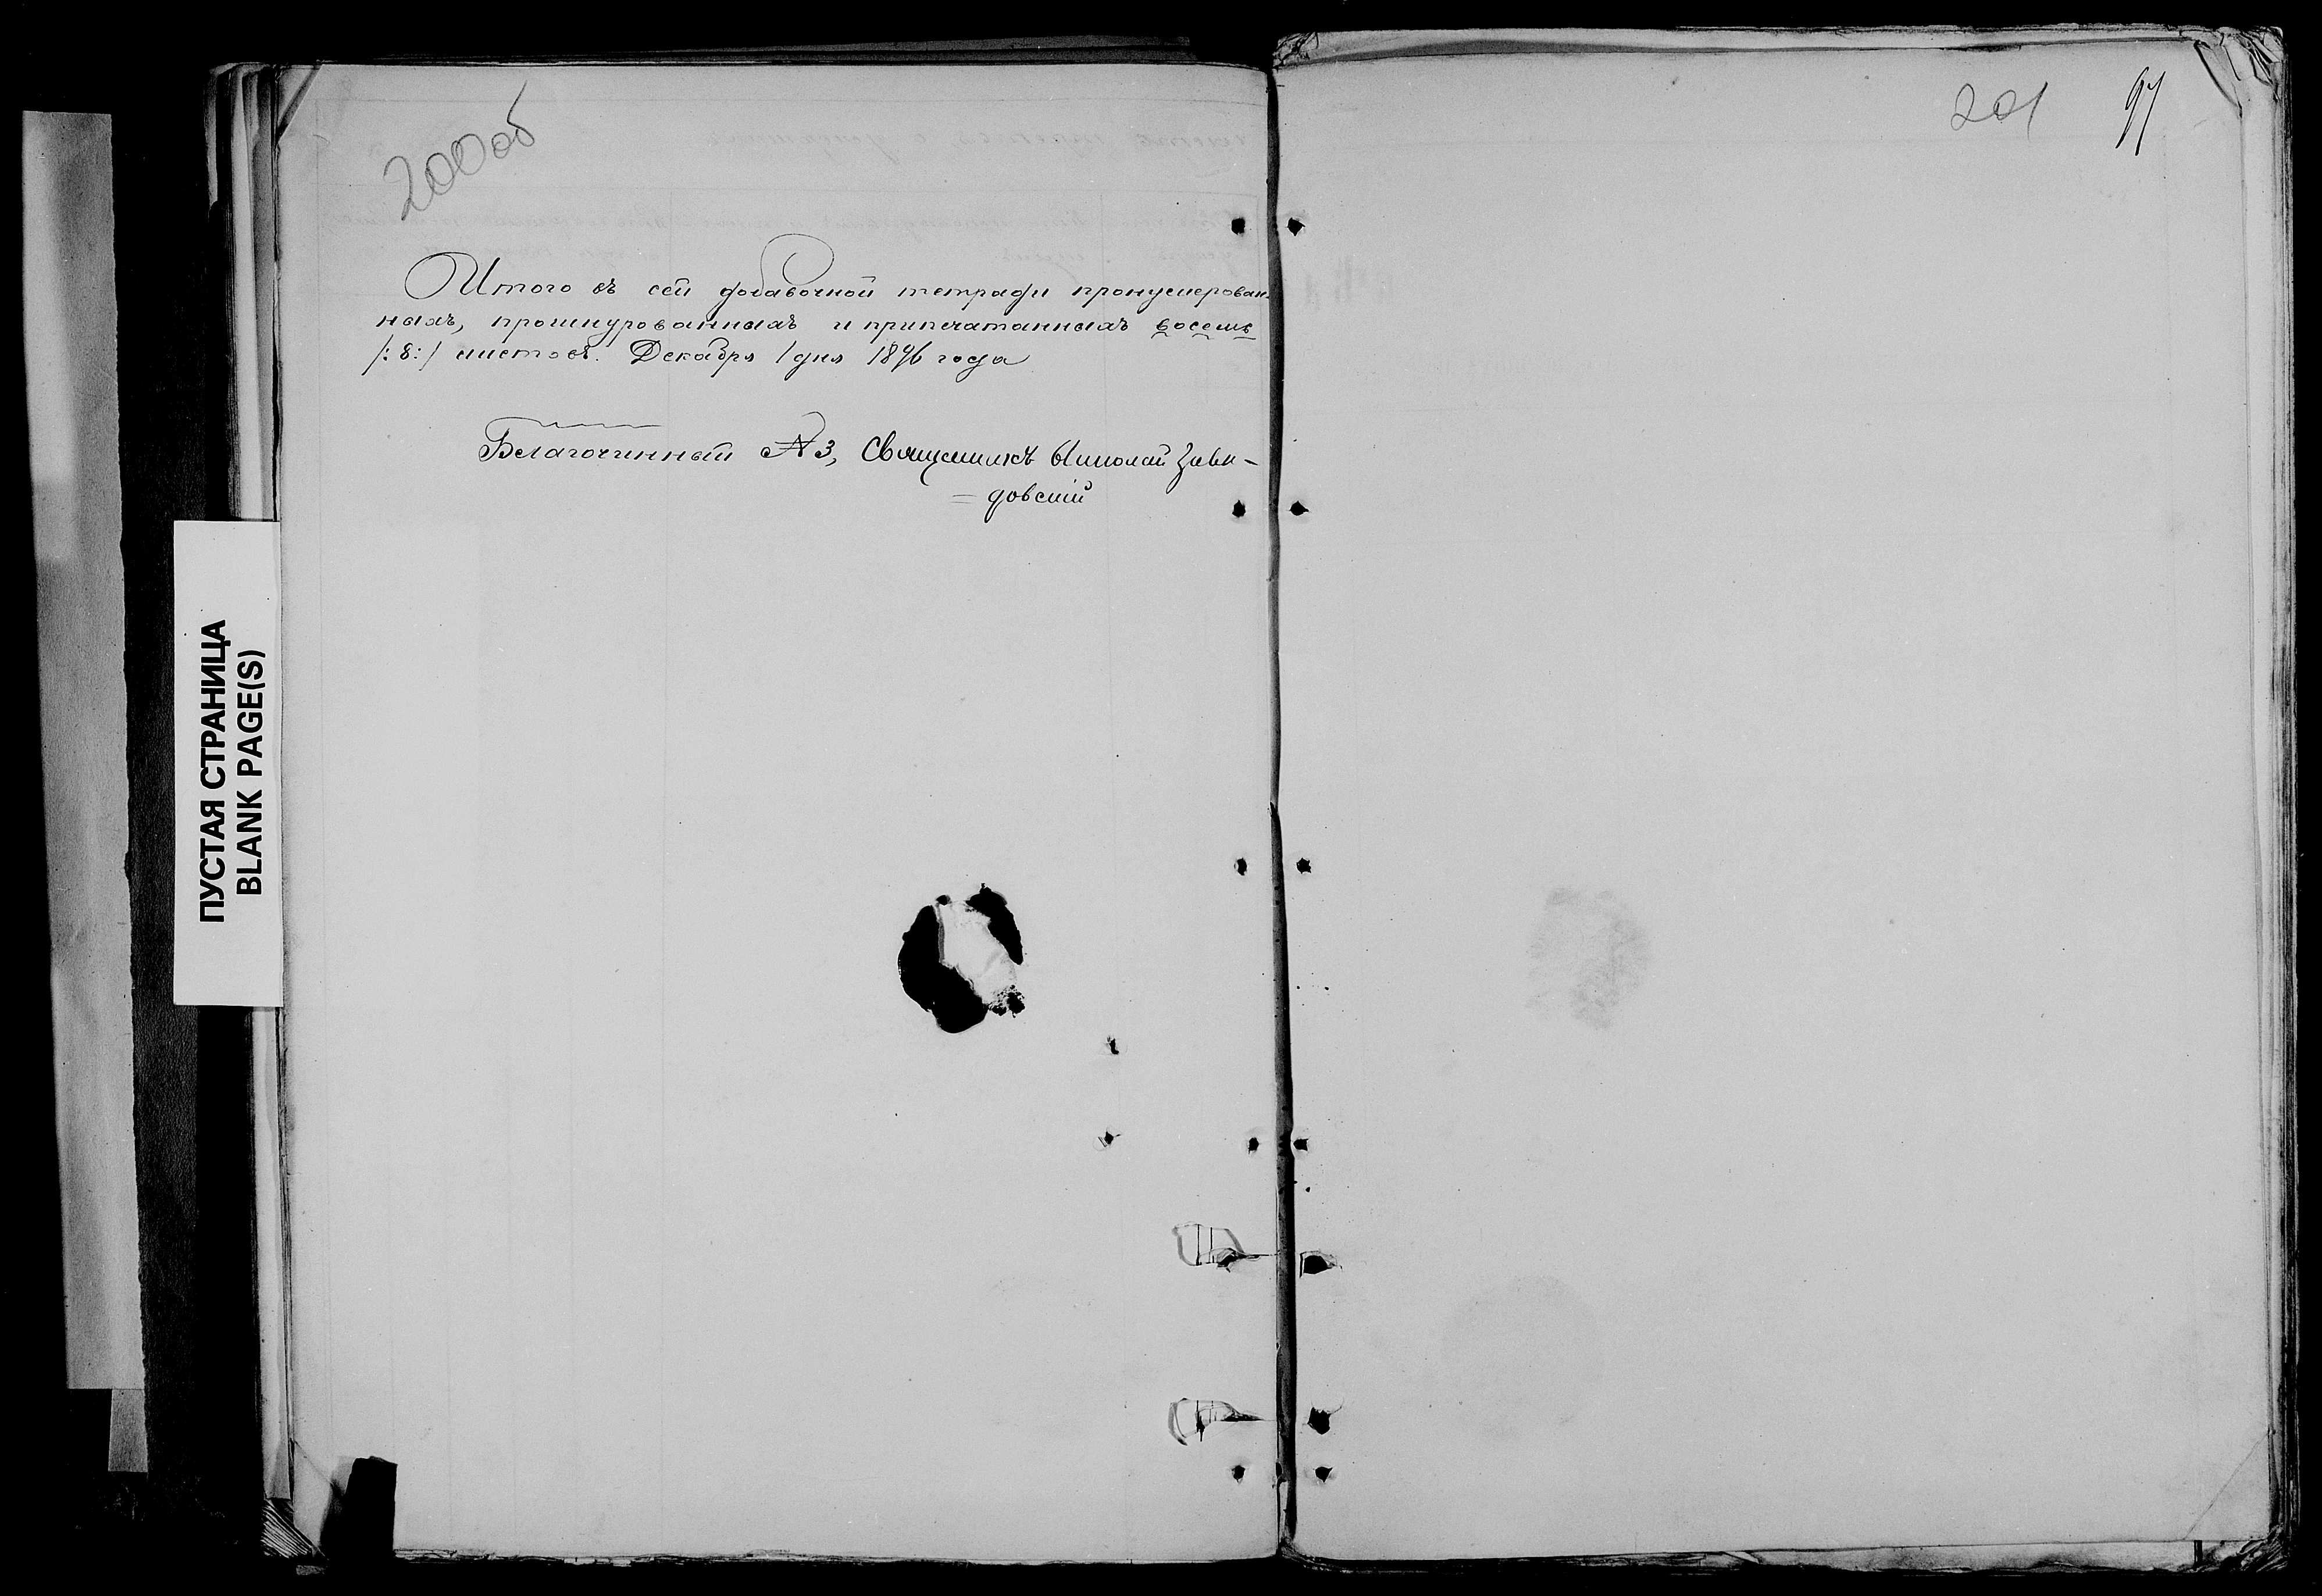 200об
Итого въ сей добавочной тетради пронумерован-
ныхъ, прошнурованныхъ и припечатанныхъ восемь
/:8:/ листовъ. Декабря 1 дня 1896 года
Благочинный №3, Священникъ Николай Зави-
= довскій
201
97
ПУСТАЯ СТРАНИЦА
BLANK PAGE(S)